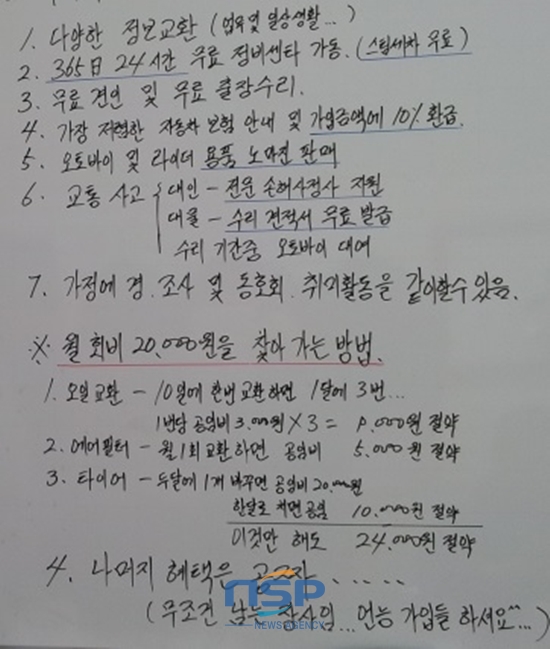 1. 다양한 정보교환 (업무및 일상생활...)
2. 365日 24시간 무료 정비센타 가동. (스팀세차 무료)
3. 무료 견인 및 무료 출장수리.
4. 가장 저렴한 자동차 보험 안내 및 가입금액에 10% 환급.
5. 오토바이 및 라이더 용품 노마진 판매
6. 교통 사고 { 대인 - 전문 손해사정사 지원
대물 - 수리 견적서 무료 발급
수리 기간중 오토바이 대여
7. 가정에 경.조사 및 동호회. 취미활동을 같이할수 있음.
※ 월 회비 20.000원을 찾아 가는 방법.
1. 오일교환 - 10일에 한번 교환하면 1달에 3번...
1번당 공임비 3.000원 X 3 = 9.000원 절약
2. 에어필터 - 월 1회 교환하면 공임비 5.000원 절약
3. 타이어 - 두달에 1개 바꾸면 공임비 20.000원
한달로 치면 공임 10.000원 절약
이것만 해도 24.000원 절약
4. 나머지 혜택은 공짜 .....
NSP
NEWS AGENCY
(무조건 남는 장사임... 언능 가입들 하셔요^^...)